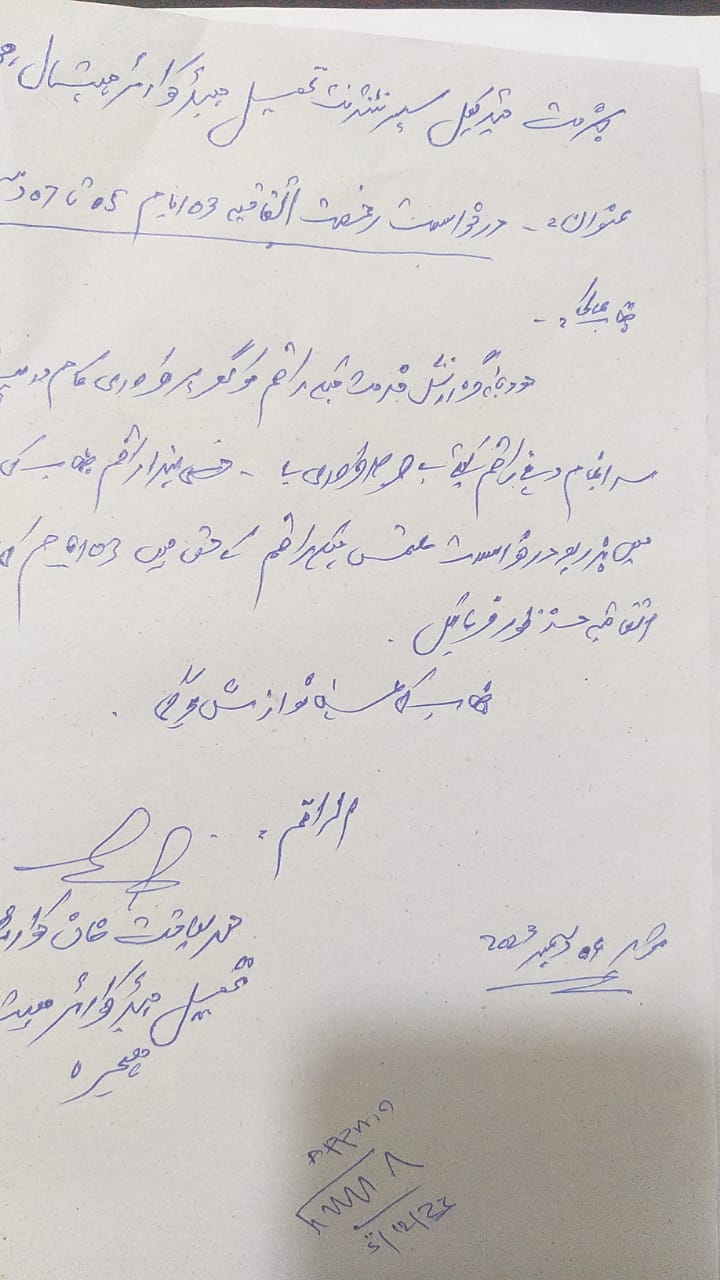 بخدمت میڈیکل سپرنٹنڈنٹ تحصیل ہیڈ کوارٹر ہسپتال
عنوان :۔ درخواست رخصت اتفاقیہ 03 ایام 05 تا 07
جناب عالی :۔
گزارش خدمت ہیکہ راقم کو گھر پر ضروری کام
سر انجام دینے راقم کیلئے بے حد ضروری ہے ۔ راقم جناب کی
میں بذریعہ درخواست ملتمس ہیکہ راقم کے حق میں 03 ایام
اتفاقیہ منظور فرمائیں ۔
جناب کی عین نوازش ہوگی ۔
الراقم :
محمد لیاقت خان
تحصیل ہیڈ کوارٹر
ہجیرہ
مورخہ 04 دسمبر 2023
5/12/23